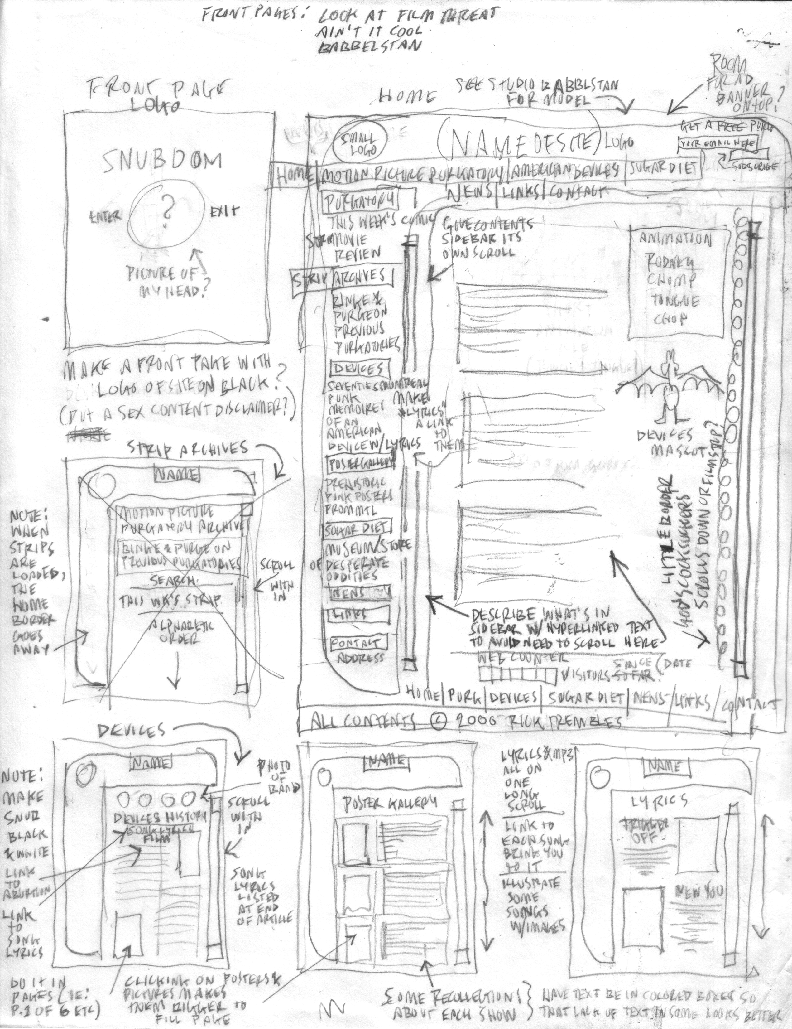 FRONT PAGES: LOOK AT FILM THREAT
AIN'T IT COOL
BABBELSTAN
FRONT PAGE
LOGO
SNUBDOM
ENTER
?
EXIT
PICTURE OF
MY HEAD?
MAKE A FRONT PAGE WITH
LOGO OF SITE ON BLACK?
(PUT A SEX CONTENT DISCLAIMER?)
HOME
SEE STUDIO BABBLSTAN
FOR MODEL
ROOM
FOR AD
BANNER
ON TOP?
SMALL
LOGO
(NAME DE SITE) LOGO
GET A FREE PURG
YOUR EMAIL HERE
SUBSCRIBE
HOME MOTION PICTURE PURGATORY AMERICAN DEVICES SUGAR DIET
NEWS LINKS CONTACT
PURGATORY
THIS WEEK'S COMIC
STRIP MOVIE
REVIEW
STRIP ARCHIVES
BINGE &
PURGE ON
PREVIOUS
PURGATORIES
DEVICES
SEVENTIES MONTREAL
PUNK
MEMOIRE
OF AN
AMERICAN
DEVICE W/ LYRICS
MAKE
"LYRICS"
A LINK
TO
THEM
POSTER GALLERY
PREHISTORIC
PUNK POSTERS
FROM MTL
SUGAR DIET
MUSEUM/STORE
OF DESPERATE
ODDITIES
NEWS
LINKS
CONTACT
ADDRESS
GIVE CONTENTS
SIDEBAR ITS
OWN SCROLL
ANIMATION
RODNEY
CHOMP
TONGUE
CHOP
DEVICES
MASCOT
LITTLE BORDER
GOD'S COCKSUCKERS
SCROLLS DOWN OR FILMSTRIP?
DESCRIBE WHAT'S IN
SIDEBAR W/ HYPERLINKED TEXT
TO AVOID NEED TO SCROLL HERE
WEB COUNTER
VISITORS SO FAR
SINCE (DATE
HOME PURG DEVICES SUGAR DIET NEWS LINKS CONTACT
ALL CONTENTS © 2006 RICK TREMBLES
STRIP ARCHIVES
NAME
MOTION PICTURE
PURGATORY ARCHIVE
BINGE & PURGE ON
PREVIOUS PURGATORIES
SEARCH
THIS WK'S STRIP
ALPHABETIC
ORDER
NOTE:
WHEN
STRIPS
ARE
LOADED,
THE
HOME
BORDER
GOES
AWAY
SCROLL
WITH IN
DEVICES
NAME
DEVICES HISTORY
SONG LYRICS
FILM
PHOTO
OF
BAND
SCROLL
WITH
IN
SONG
LYRICS
LISTED
AT END
OF ARTICLE
NOTE:
MAKE
SNUB
BLACK
& WHITE
LINK
TO
ABORTION
LINK
TO
SONG
LYRICS
DO IT IN
PAGES (IE:
P. 1 OF 6 ETC)
CLICKING ON POSTERS &
PICTURES MAKES
THEM BIGGER TO
FILL PAGE
NAME
POSTER GALLERY
SOME RECOLLECTIONS
ABOUT EACH SHOW
LYRICS & MP3
ALL ON
ONE
LONG
SCROLL
LINK TO
EACH SONG
BRING YOU
TO IT
ILLUSTRATE
SOME
SONGS
W/IMAGES
NAME
LYRICS
TRIGGER
OFF
NEW YOU
HAVE TEXT BE IN COLORED BOXES SO
THAT LACK OF TEXT IN SOME LOOKS BETTER